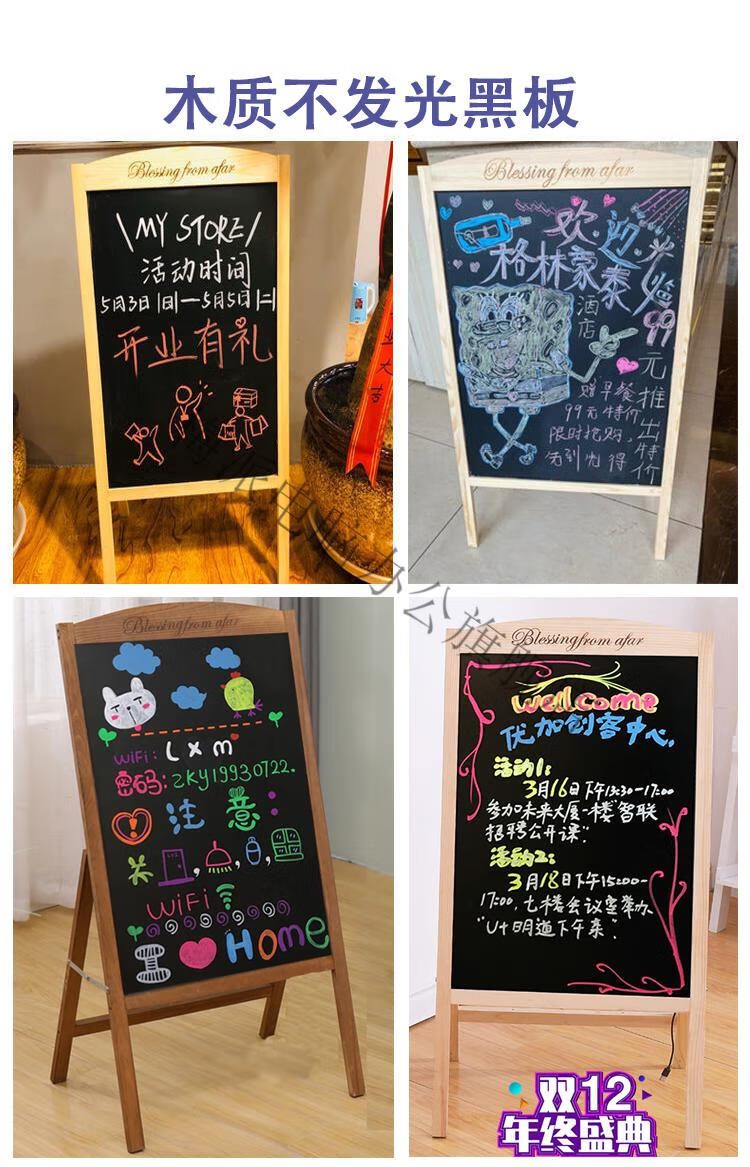 木质不发光黑板
Blessing from afar
\MY STORE/
活动时间
5月3日|日|—5月5日|二|
开业有礼
业大吉
Blessing from afar
欢迎光临
格林蒙泰
酒店
99元推出特价
赠早餐
99元特价
限时抢购,
先到先得
海派电脑办公旗舰
Blessing from afar
WiFi: Lxm
密码: ZKY19930722.
注意:
关
WiFi
Home
Blessing from afar
wellcome
优加创客中心.
活动1:
3月16日下午13:30-17:00
参加未来大厦一楼“智联
招聘公开课”
活动2:
3月18日下午15:00-
17:00,七楼会议室举办
“U+明道下午茶”
双12
年终盛典